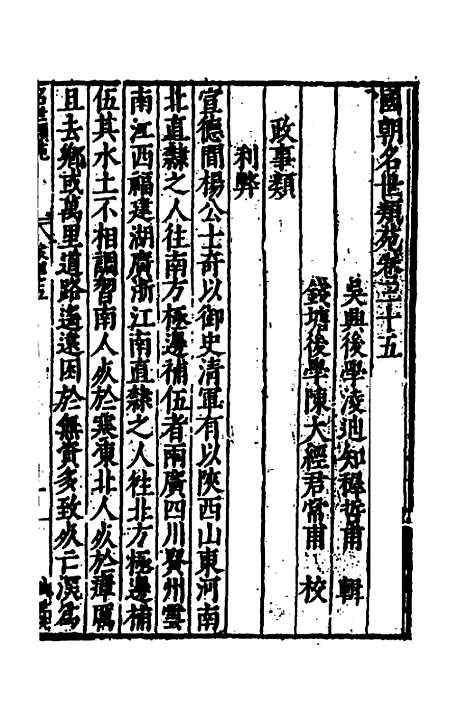 國朝名世類苑卷三十五
吳興後學凌迪知穉哲甫 輯
錢塘後學陳大經君常甫 校
政事類
利弊
宣德間楊公士奇以御史清軍有以陝西山東河南
北直隸之人往南方極邊補伍者兩廣四川貴州雲
南江西福建湖廣浙江南直隸之人往北方極邊補
伍其水土不相調習南人死於寒凍北人死於瘴癘
且去鄉或萬里道路遙遠困於無資多致死亡深為
名世類苑